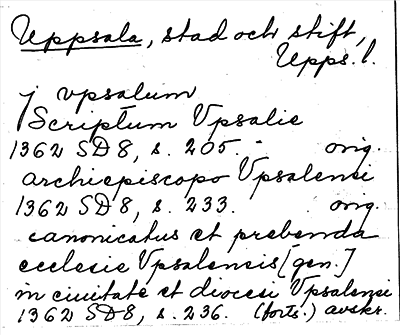 Uppsala, stad och stift,
Upps. l.
j vpsalum
Scriptum Vpsalie
1362 SD 8, s. 205. orig.
archiepiscopo Vpsalensi
1362 SD 8, s. 233. orig.
canonicatus et prebenda
ecclesie Vpsalensis [gen.]
in ciuitate et diocesi Vpsalensi
1362 SD 8, s. 236. (forts.) avskr.